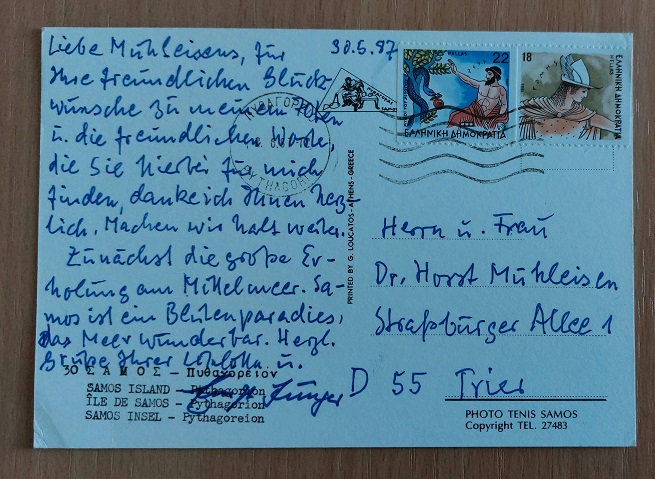 30.5.87
Liebe Mühleisens, für
Ihre freundlichen Glück-
wünsche zu meinem
u. die freundlichen Worte,
die Sie hierbei für mich
finden, danke ich Ihnen herz-
lich. Machen wir halt weiter.
Zunächst die große Er-
holung am Mittelmeer. Sa-
mos ist ein Blütenparadies,
das Meer wunderbar. Herzl.
Grüße Ihrer u.
Jünger
30 ΣΑΜΟΣ – Πυθαγόρειον
SAMOS ISLAND – Pythagorion
ÎLE DE SAMOS – Pythagorion
SAMOS INSEL – Pythagoreion
PRINTED BY G. LOUCATOS - ATHENS - GREECE
HELLAS 22
ΕΛΛΗΝΙΚΗ ΔΗΜΟΚΡΑΤΙΑ
18
ΕΛΛΗΝΙΚΗ ΔΗΜΟΚΡΑΤΙΑ
HELLAS
Herrn u. Frau
Dr. Horst Mühleisen
Straßburger Allee 1
D 55 Trier
PHOTO TENIS SAMOS
Copyright TEL. 27483